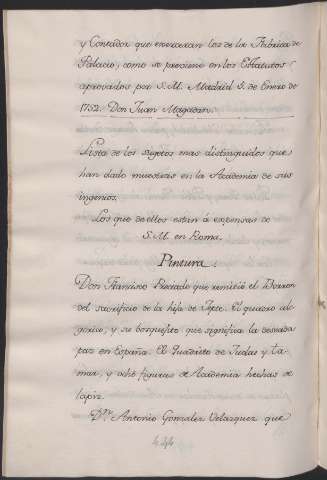 y Contador que exerceran los de la Fabrica de
Palacio, como se previene en los Estatutos
aprovados por S.M. Madrid 5. de Enero de
1752. Don Juan Magadan.
Lista de los sugetos mas distinguidos que
han dado muestras en la Academia de sus
ingenios.
Los que de ellos estan á expensas de
S. M. en Roma.
Pintura.
Don Francisco Preciado que remitió el Borron
del sacrificio de la hija de Jepte. El quadro ale
gorico, y su borquejito que significa la deseada
paz en España. El Quadrito de Judas y Ta
mar, y ocho figuras de Academia hechas de
lapiz.
Dn. Antonio Gonzalez Velazquez que
424